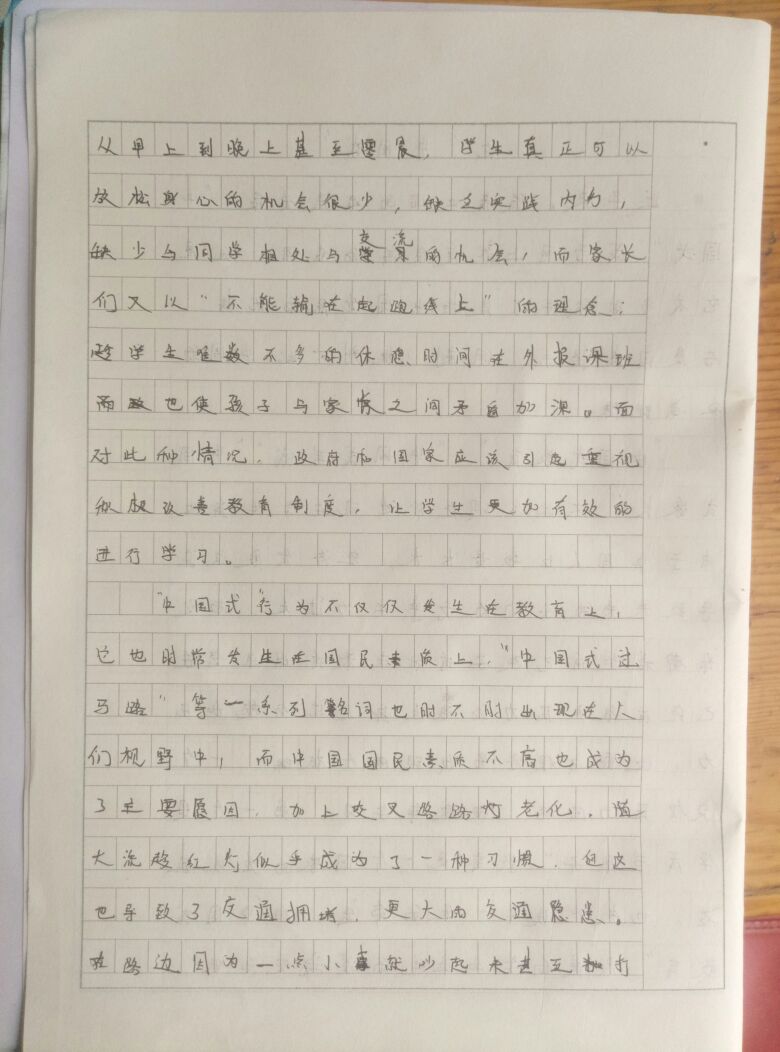 从早上到晚上甚至凌晨，学生真正可以
放松身心的机会很少，缺乏实践内力，
缺少与同学相处与交流的机会，而家长
们又以“不能输在起跑线上”的理念；
学生唯数不多的休息时间在外报课班
而也使孩子与家长之间矛盾加深。面
对此种情况，政府和国家应该引起重视
积极改善教育制度，让学生更加有效的
进行学习。
“中国式”行为不仅仅发生在教育上，
它也时常发生在国民素质上，“中国式过
马路”等一系列名词也时不时出现在人
们视野中，而中国国民素质不高也成为
了主要原因，加上交叉路路灯老化，随
大流趁红灯似乎成为了一种习惯，但这
也导致了交通拥堵，更大的交通隐患。
在路边因为一点小事就吵起来甚至打